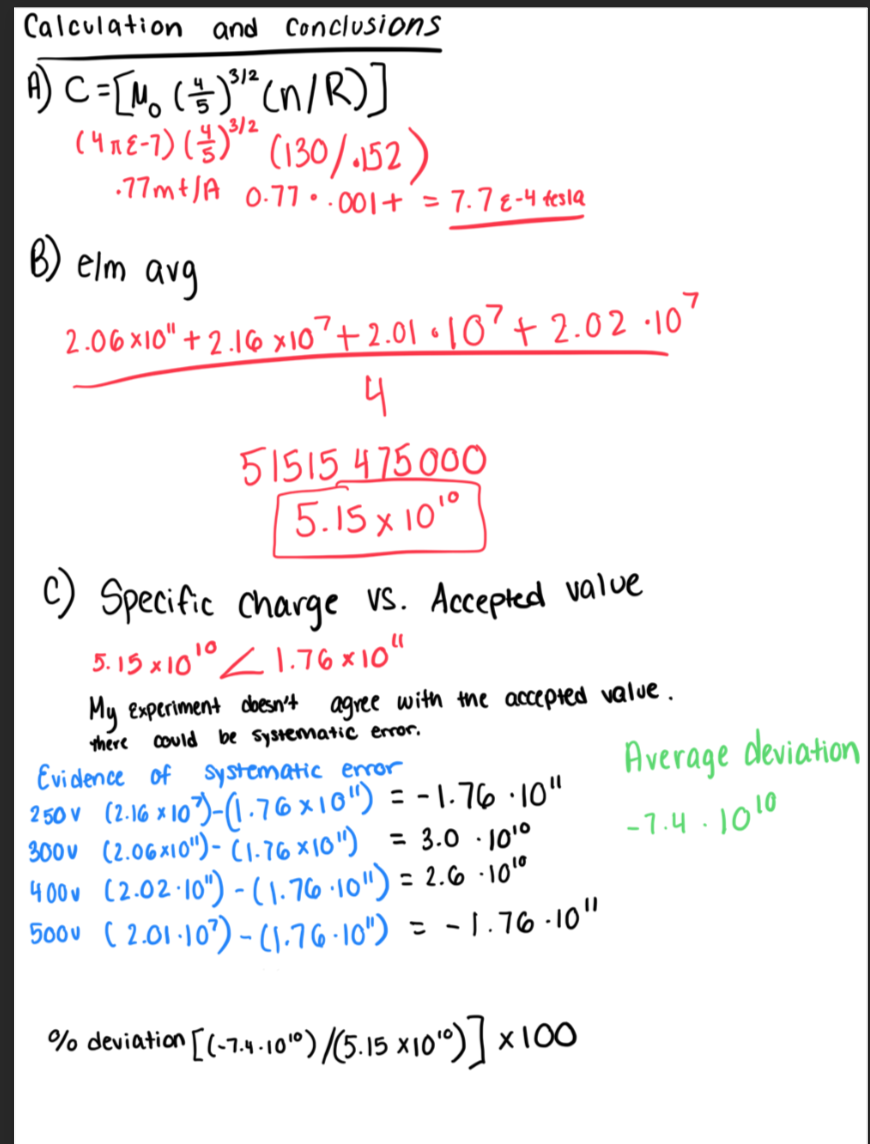 Calculation and conclusions
A) C=[μ₀ (4/5)^3/2 (n/R)]
(4πε-7) (4/5)^3/2 (130/.152)
.77mt/A 0.77 • .001t = 7.7ε-4 tesla
B) e/m avg
2.06×10¹¹ + 2.16 ×10⁷ + 2.01 • 10⁷ + 2.02 ·10⁷
4
51515475000
5.15 x 10¹⁰
C) Specific charge vs. Accepted value
5.15 x10¹⁰ < 1.76 x10¹¹
My experiment doesn't agree with the accepted value.
there could be systematic error.
Average deviation
Evidence of systematic error
250v (2.16 x10⁷)-(1.76 x10¹¹) = -1.76 ·10¹¹
-7.4 · 10¹⁰
300v (2.06x10¹¹)- (1.76 x10¹¹) = 3.0 ·10¹⁰
400v (2.02·10¹¹) - (1.76·10¹¹) = 2.6 ·10¹⁰
500v (2.01·10⁷) - (1.76·10¹¹) = -1.76·10¹¹
% deviation [(-7.4·10¹⁰)/(5.15 x10¹⁰)] x100